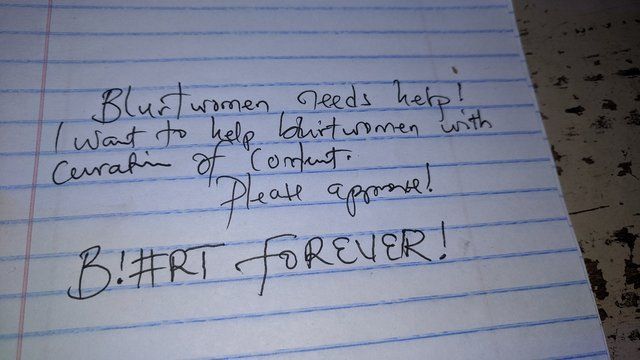 Blurtwomen needs help!
I want to help blurtwomen with
Curation of Content.
Please approve!
B!#RT FOREVER!